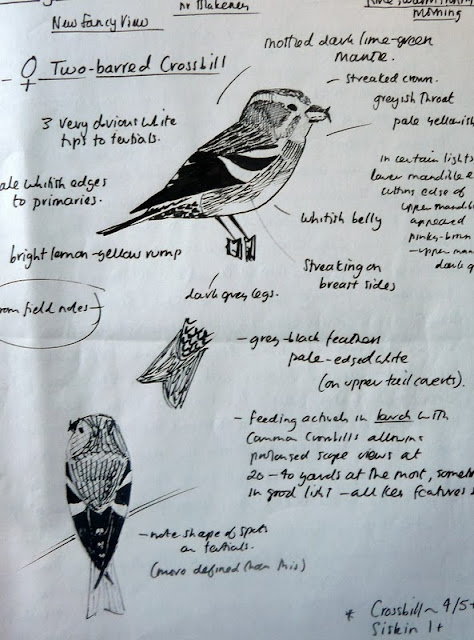 New Fancy View
nr Blakeney
morning
♀ Two-barred Crossbill
mottled dark lime-green
mantle.
streaked crown.
greyish throat
pale yellowish
3 very obvious white
tips to tertials.
in certain lights
lower mandible
cutting edge of
upper mandible
appeared
pinky-brown
- upper man
dark
ale whitish edges
to primaries.
whitish belly
bright lemon-yellow rump
Streaking on
breast sides
dark grey legs.
rom field notes
- grey-black feathers
pale-edged white
(on upper tail coverts).
- feeding actively in larch with
Common Crossbills allowing
prolonged scope views at
20-40 yards at the most, some
in good light - all key features
- note shape of spots
on tertials.
(more defined than this)
* Crossbill ~ 4/5+
Siskin 1+